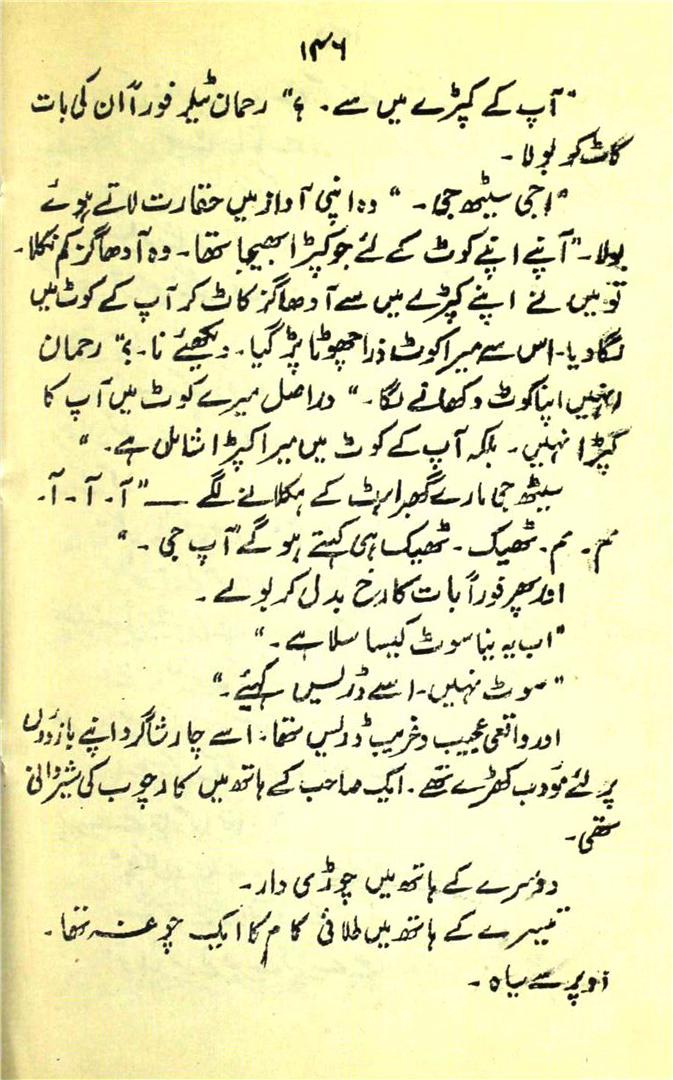 ۱۳۶
"آپ کے کپڑے میں سے۔ ؟" رحمان ٹیلر فوراً ان کی بات
کاٹ کر بولا۔
"اجی سیٹھ جی۔" وہ اپنی آواز میں حقارت لاتے ہوئے
بولا۔ "آپنے اپنے کوٹ کے لئے جو کپڑا بھیجا تھا۔ وہ آدھا گز کم نکلا۔
تو میں نے اپنے کپڑے میں سے آدھا گز کاٹ کر آپ کے کوٹ میں
لگا دیا۔ اس سے میرا کوٹ ذرا چھوٹا پڑ گیا۔ دیکھئے نا۔؟" رحمان
انہیں اپنا کوٹ دکھانے لگا۔ "دراصل میرے کوٹ میں آپ کا
کپڑا نہیں۔ بلکہ آپ کے کوٹ میں میرا کپڑا شامل ہے۔"
سیٹھ جی مارے گھبراہٹ کے ہکلانے لگے — "آ۔ آ۔ آ۔
م۔ م۔ ٹھیک۔ ٹھیک ہی کہتے ہو گے آپ جی۔"
اور پھر فوراً بات کا رخ بدل کر بولے۔
"اب یہ نیا سوٹ کیسا سلا ہے۔"
"سوٹ نہیں۔ اسے ڈریس کہیئے۔"
اور واقعی عجیب و غریب ڈریس تھا۔ اسے چار شاگرد اپنے بازوؤں
پر لئے مؤدب کھڑے تھے۔ ایک صاحب کے ہاتھ میں کارچوب کی شیروانی
تھی۔
دوسرے کے ہاتھ میں چوڑی دار۔
تیسرے کے ہاتھ میں طلائی کام کا ایک چوغہ تھا۔
اوپر سے سیاہ۔